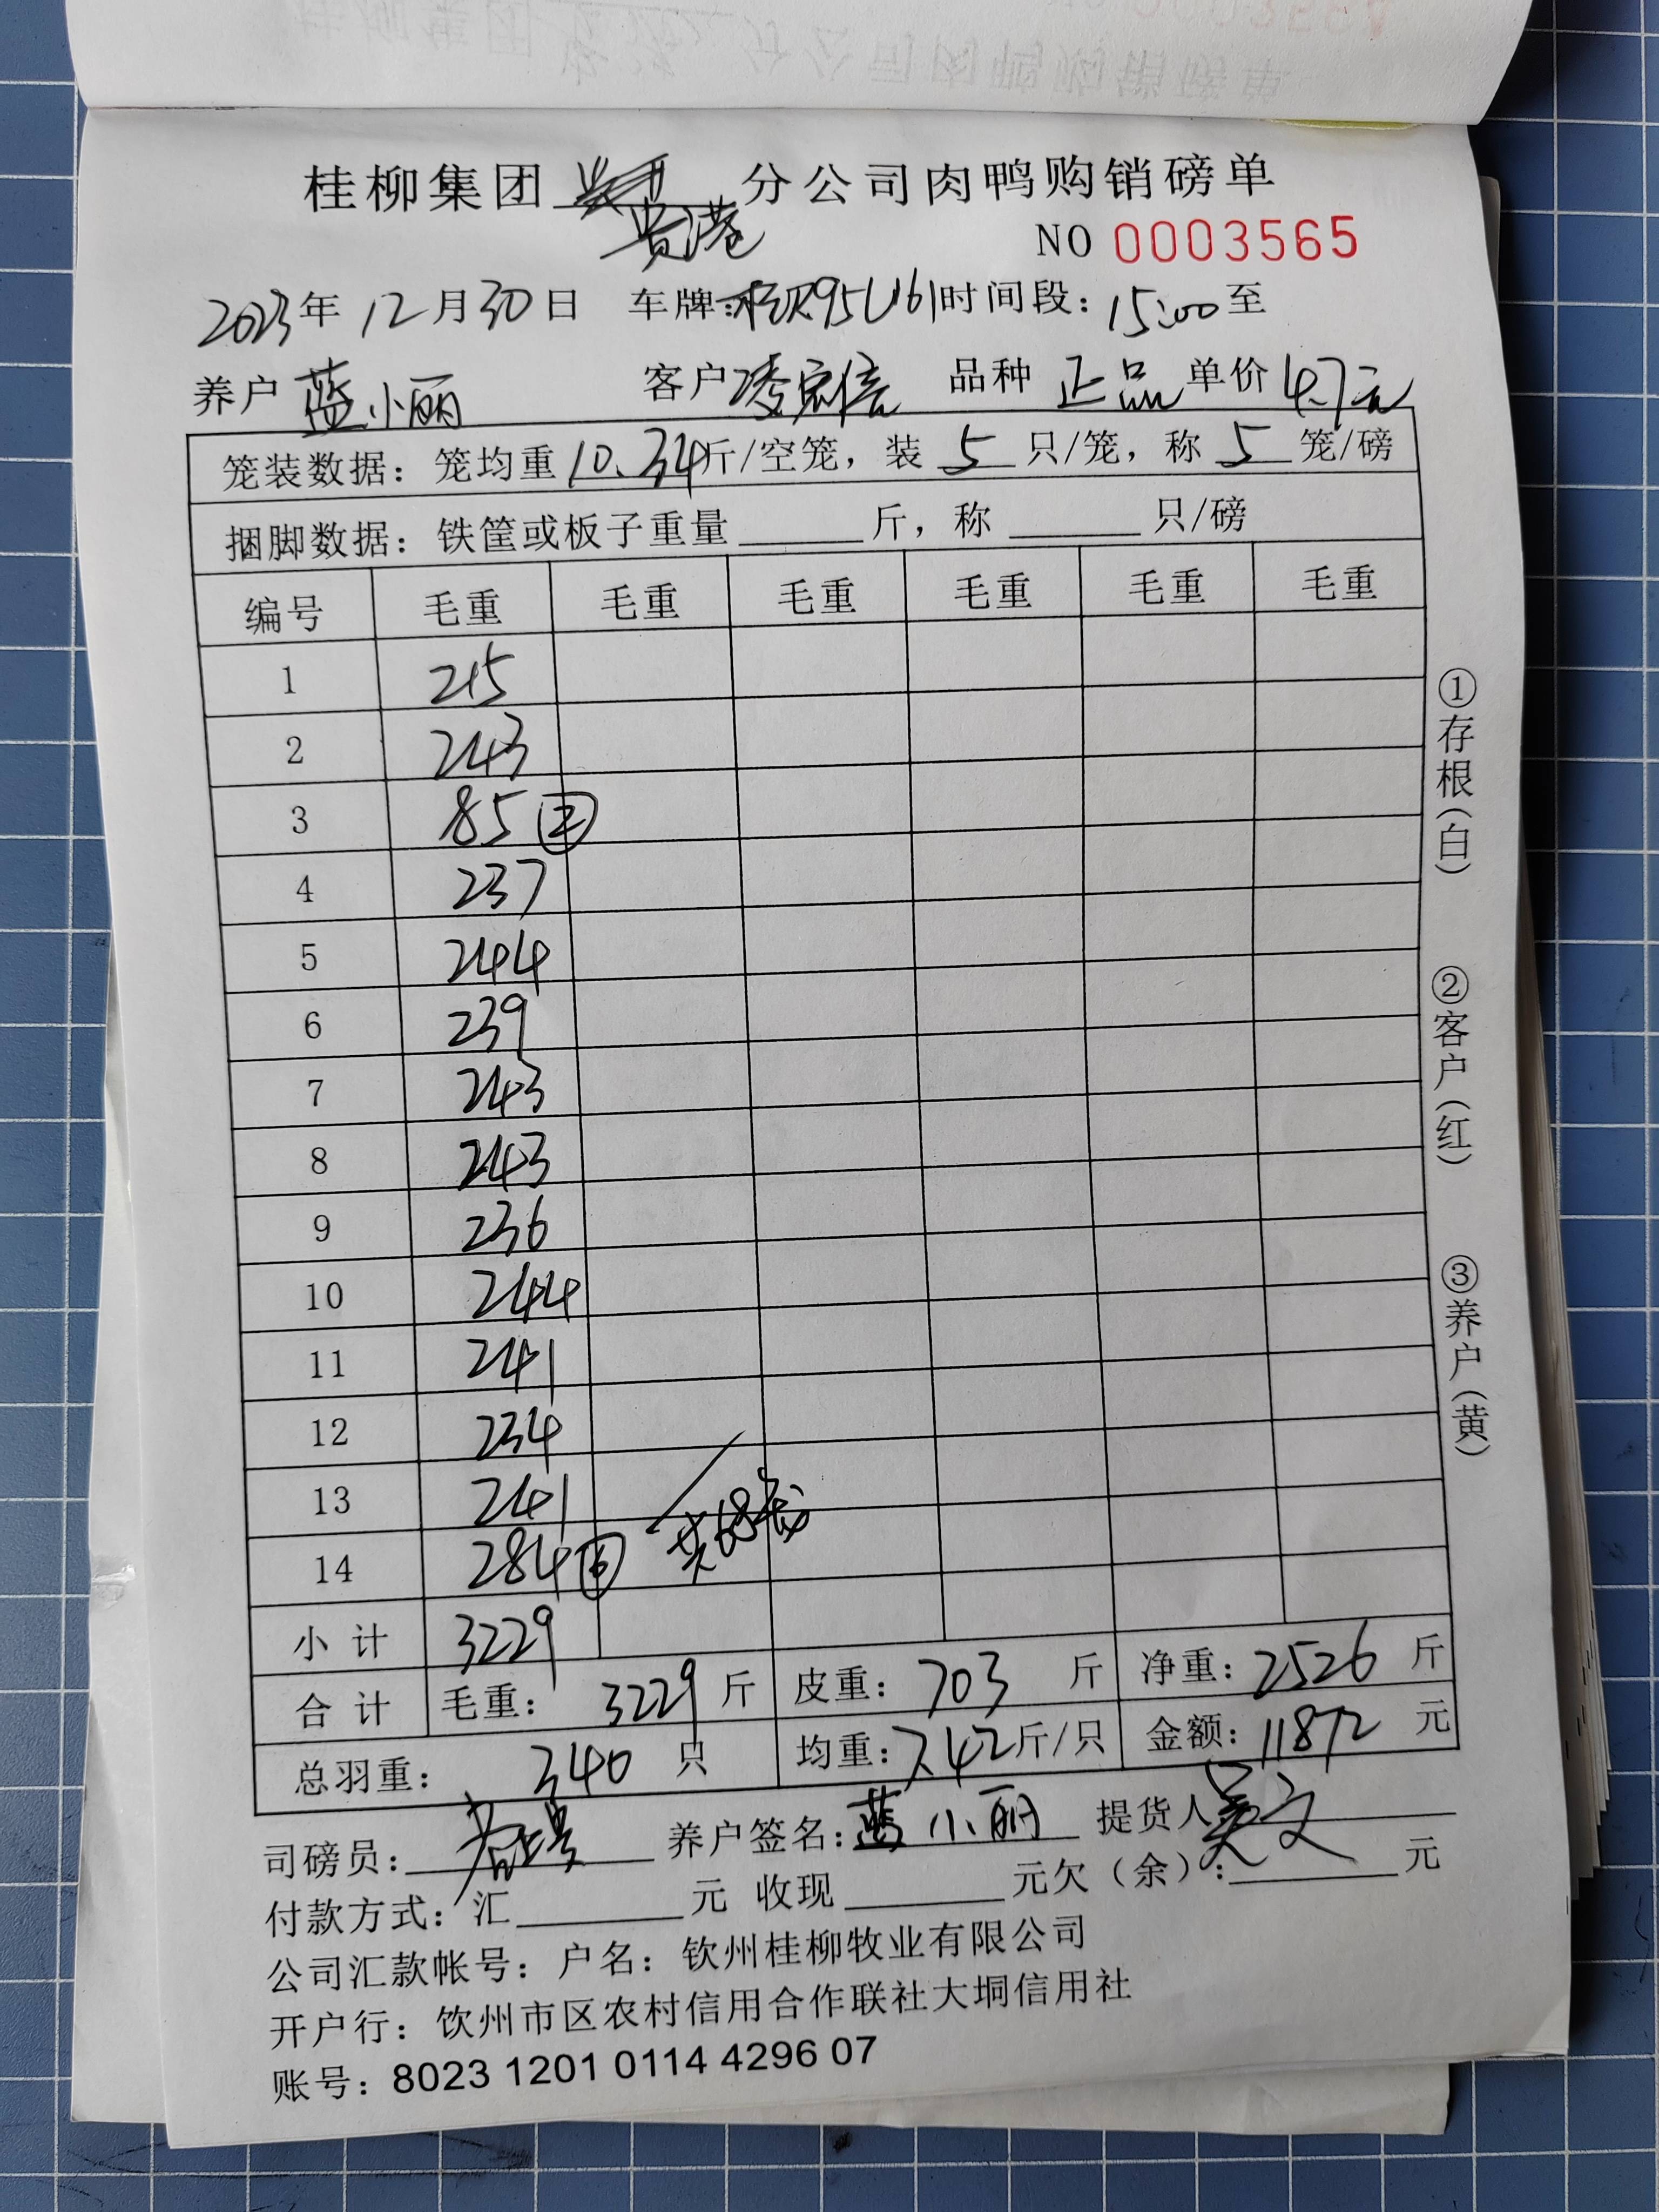 桂柳集团 贵港 分公司肉鸭购销磅单
NO 0003565
2023年 12月30日 车牌: 时间段: 15:00至
养户 蓝小丽 客户 凌家信 品种 正品 单价 4.7元
笼装数据: 笼均重 10.34 斤/空笼, 装 5 只/笼, 称 5 笼/磅
捆脚数据: 铁筐或板子重量 斤, 称 只/磅
编号 毛重 毛重 毛重 毛重 毛重 毛重
1 215
2 243
3 85 ②
4 237
5 244
6 239
7 243
8 243
9 236
10 244
11 241
12 234
13 241
14 284 ⑥ 共68笼
小计 3229
合计 毛重: 3229 斤 皮重: 703 斤 净重: 2526 斤
总羽重: 340 只 均重: 7.42斤/只 金额: 11872 元
司磅员: 养户签名: 蓝小丽 提货人 吴文
付款方式: 汇 元 收现 元欠(余): 元
公司汇款帐号: 户名: 钦州桂柳牧业有限公司
开户行: 钦州市区农村信用合作联社大垌信用社
账号: 8023 1201 0114 4296 07
①存根(白)
②客户(红)
③养户(黄)